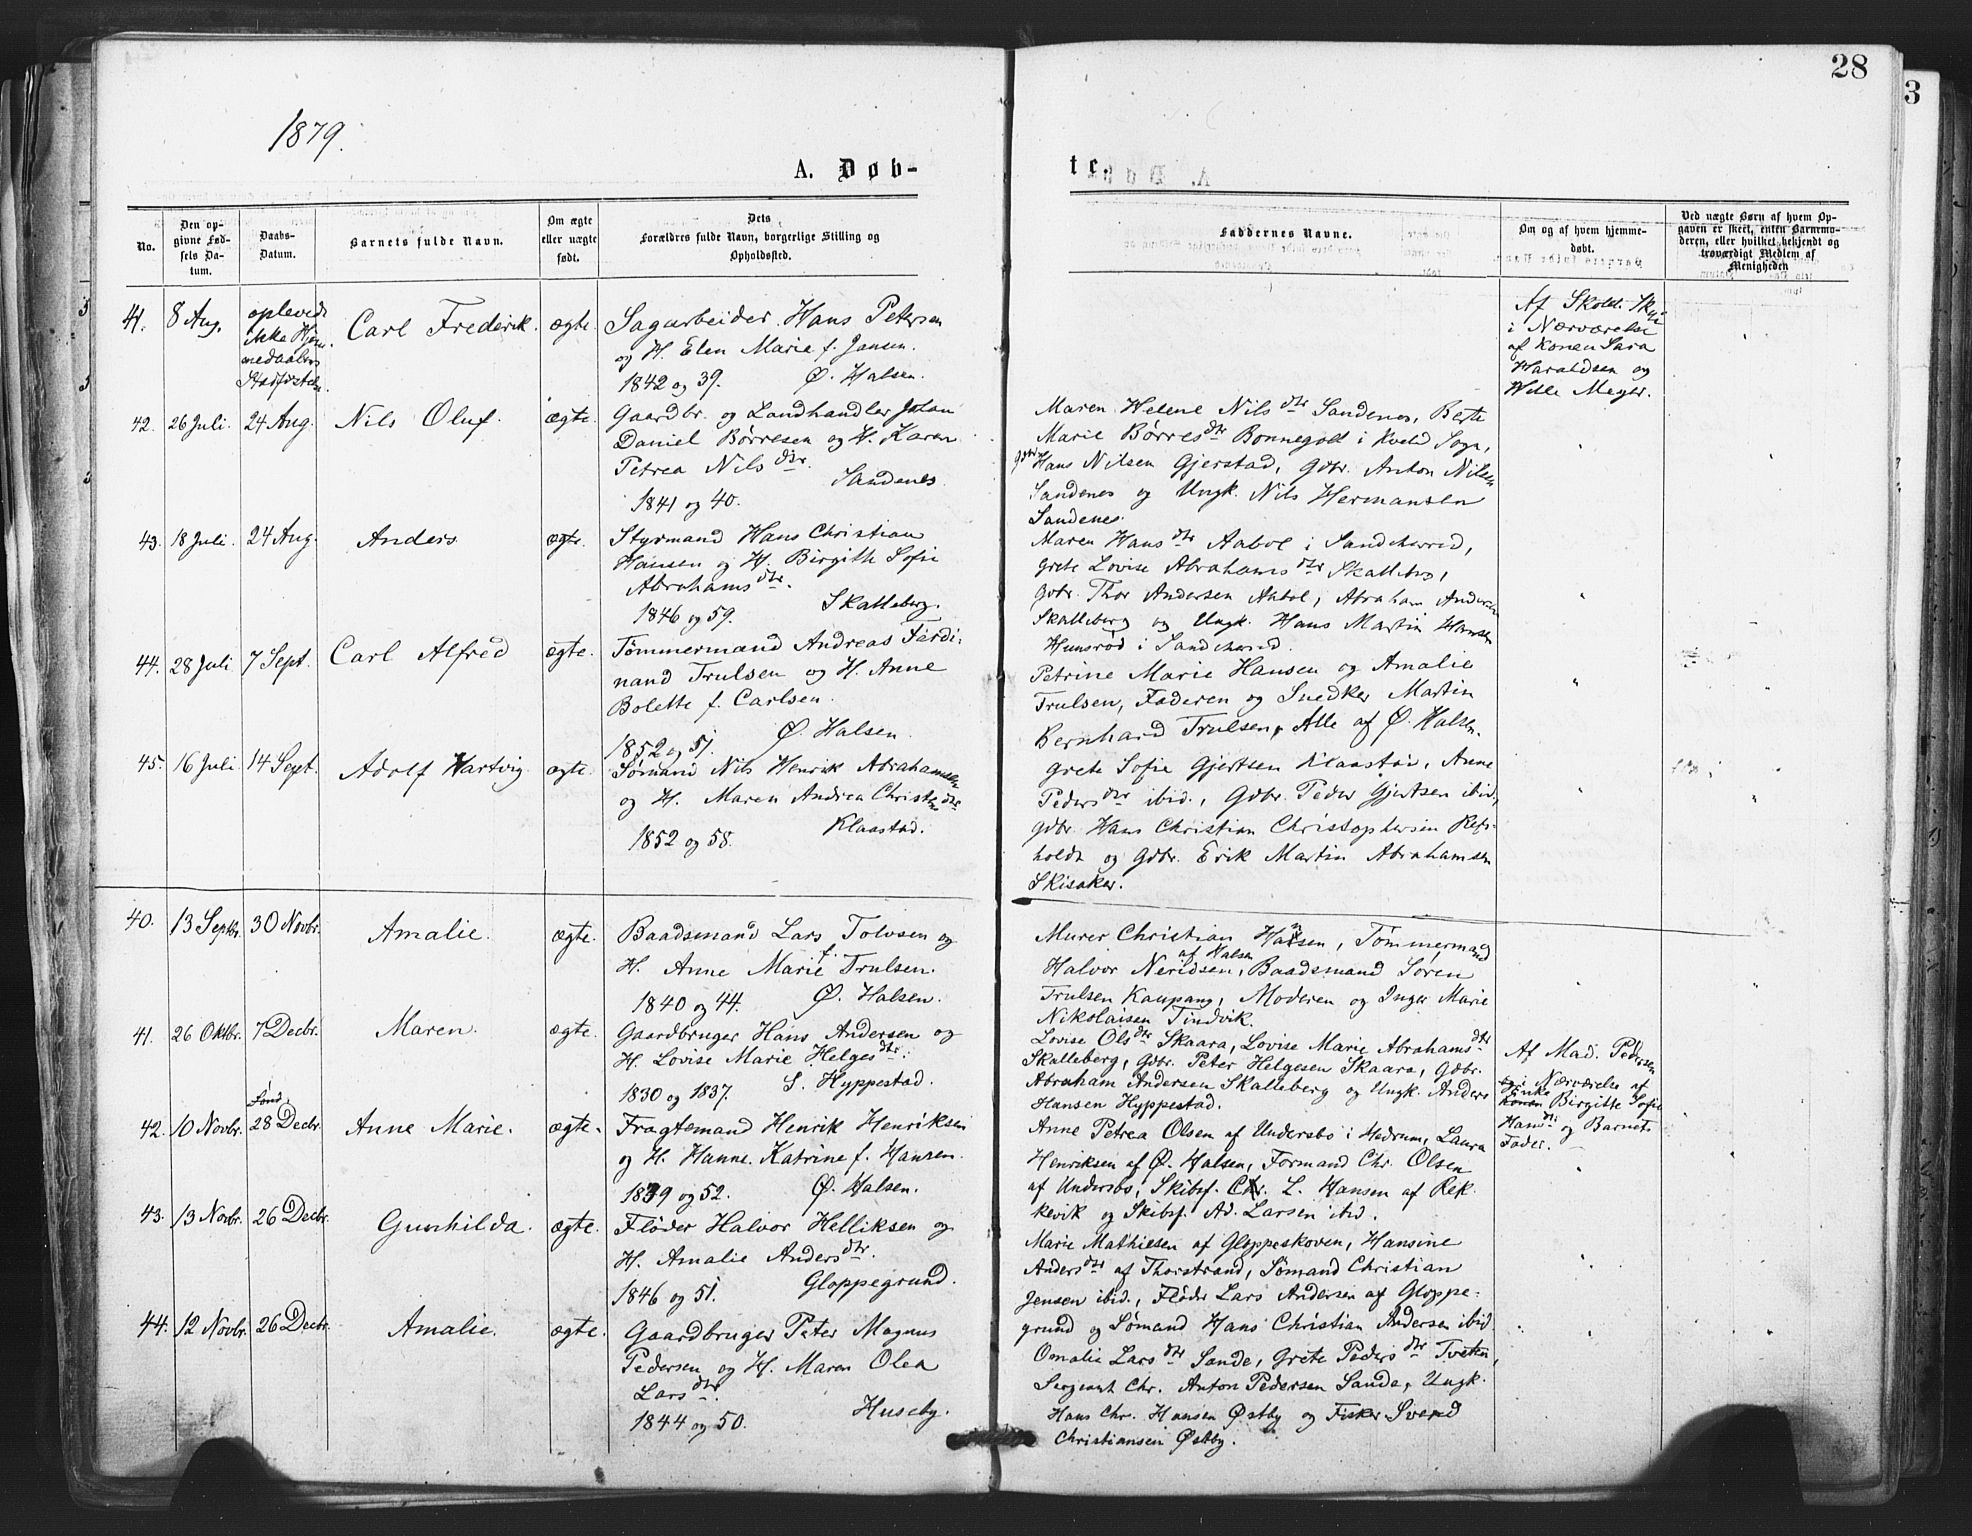 28
3
1879.
A. Døb-
te.
No.
Den op-
givne Fød-
sels Da-
tum.
Daabs-
Datum.
Barnets fulde Navn.
Om ægte
eller uægte
født.
Dets
Forældres fulde Navn, borgerlige Stilling og
Opholdssted.
Faddernes Navne.
Om og af hvem hjemme-
døbt.
Ved uægte Børn af hvem Op-
gaven er skeet, enten Barnemo-
deren, eller hvilket bekjendt og
troværdigt Medlem af
Menigheden
41. 8 Aug. oplevede
ikke Hjem-
medaabens
Stadfæstelse.
Carl Frederik. ægte. Sagarbeider Hans Petersen
og H. Elen Marie f. Jansen.
1842 og 39. Ø. Halsen.
Af Skoleh.
i Nærværelse
af Konen Sara
Haraldsen og
Meyer.
42. 26 Juli. 24 Aug. Nils Oluf. ægte. Gaardbr. og Landhandler Johan
Daniel Børresen og H. Karen
Petrea Nilsdtr.
Sandenes.
1841 og 40.
Maren Helene Nilsdtr Sandenes, Berte
Marie Børresdtr Bonnegolt i Kvelle Sogn,
Gdbr Hans Nilsen Gjerstad, Gdbr. Anton Nilsen
Sandenes og Ungk. Nils Hermansen
Sandenes.
43. 18 Juli. 24 Aug. Anders ægte. Styrmand Hans Christian
Hansen og H. Birgith Sofie
Abrahamsdtr.
1846 og 59. Skalleberg.
Maren Hansdtr Aabol i Sandeherred,
Grete Lovise Abrahamsdtr Skalleberg,
Gdbr. Thor Andersen Aabol, Abraham Andersen
Skalleberg og Ungk. Hans Martin Hansen
Hunsrød i Sandeherred.
44. 28 Juli 7 Sept. Carl Alfred ægte. Tømmermand Andreas Ferdi-
nand Trulsen og H. Anne
Bolette f. Carlsen.
Ø. Halsen.
1852 og 51.
Petrine Marie Hansen og Amalie
Trulsen, Faderen og Snedker Martin
Bernhard Trulsen, Alle af Ø. Halsen.
45. 16 Juli 14 Sept. Adolf Hartvig ægte. Sømand Nils Henrik Abrahamsen
og H. Maren Andrea Christensdtr
Klaastad.
1852 og 58.
Grete Sofie Gjertsen Klaastad, Anne
Pedersdtr ibid., Gdbr. Peder Gjertsen ibid,
Gdbr. Hans Christian Christophersen Refs-
holdt og Gdbr. Erik Martin Abrahamsen
Skisaker.
40. 13 Septbr. 30 Novbr. Amalie. ægte. Baadsmand Lars Tolvsen og
H. Anne Marie f. Trulsen.
1840 og 44. Ø. Halsen.
Murer Christian Hansen, Tømmermand
af Halsen
Halvor Neridsen, Baadsmand Søren
Trulsen Kaupang, Moderen og Inger Marie
Nikolaisen Tindvik.
41. 26 Oktbr. 7 Decbr. Maren. ægte. Gaardbruger Hans Andersen og
H. Lovise Marie Helgesdtr.
1830 og 1837. S. Hyppestad.
Lovise Olsdtr Skaara, Lovise Marie Abrahamsdtr
Skalleberg, Gdbr. Peter Helgesen Skaara, Gdbr.
Abraham Andersen Skalleberg og Ungk. Anders
Hansen Hyppestad.
Af Mad. Pedersen
i Nærværelse af
Enke
Konen Birgitte Sofie
Hansdtr og Barnets
Fader.
42. 10 Novbr. Sønd. 28 Decbr. Anne Marie. ægte. Fragtemand Henrik Henriksen
og H. Hanne Katrine f. Hansen.
1839 og 52. Ø. Halsen.
Anne Petrea Olsen af Undersbo i Hedrum, Laura
Henriksen af Ø. Halsen, Formand Chr. Olsen
af Undersbo, Skibsf. Chr. L. Hansen af Rek-
kevik og Skibsf. Ad. Larsen ibid.
43. 13 Novbr. 26 Decbr. Gunhilda. ægte. Fløder Halvor Helliksen og
H. Amalie Andersdtr.
1846 og 51. Gloppegrund.
Marie Mathiesen af Gloppeskoven, Hansine
Andersdtr af Thorstrand, Sømand Christian
Jensen ibid., Fløder Lars Andersen af Gloppe-
grund og Sømand Hans Christian Andersen ibid.
44. 12 Novbr. 26 Decbr. Amalie. ægte. Gaardbruger Peter Magnus
Pedersen og H. Maren Olea
Larsdtr.
1844 og 50. Huseby.
Omalie Larsdtr Sande, Grete Pedersdtr Tveten,
Sergeant Chr. Anton Pedersen Sande, Ungk.
Hans Chr. Hansen Østby og Fisker Svend
Christiansen Østby.